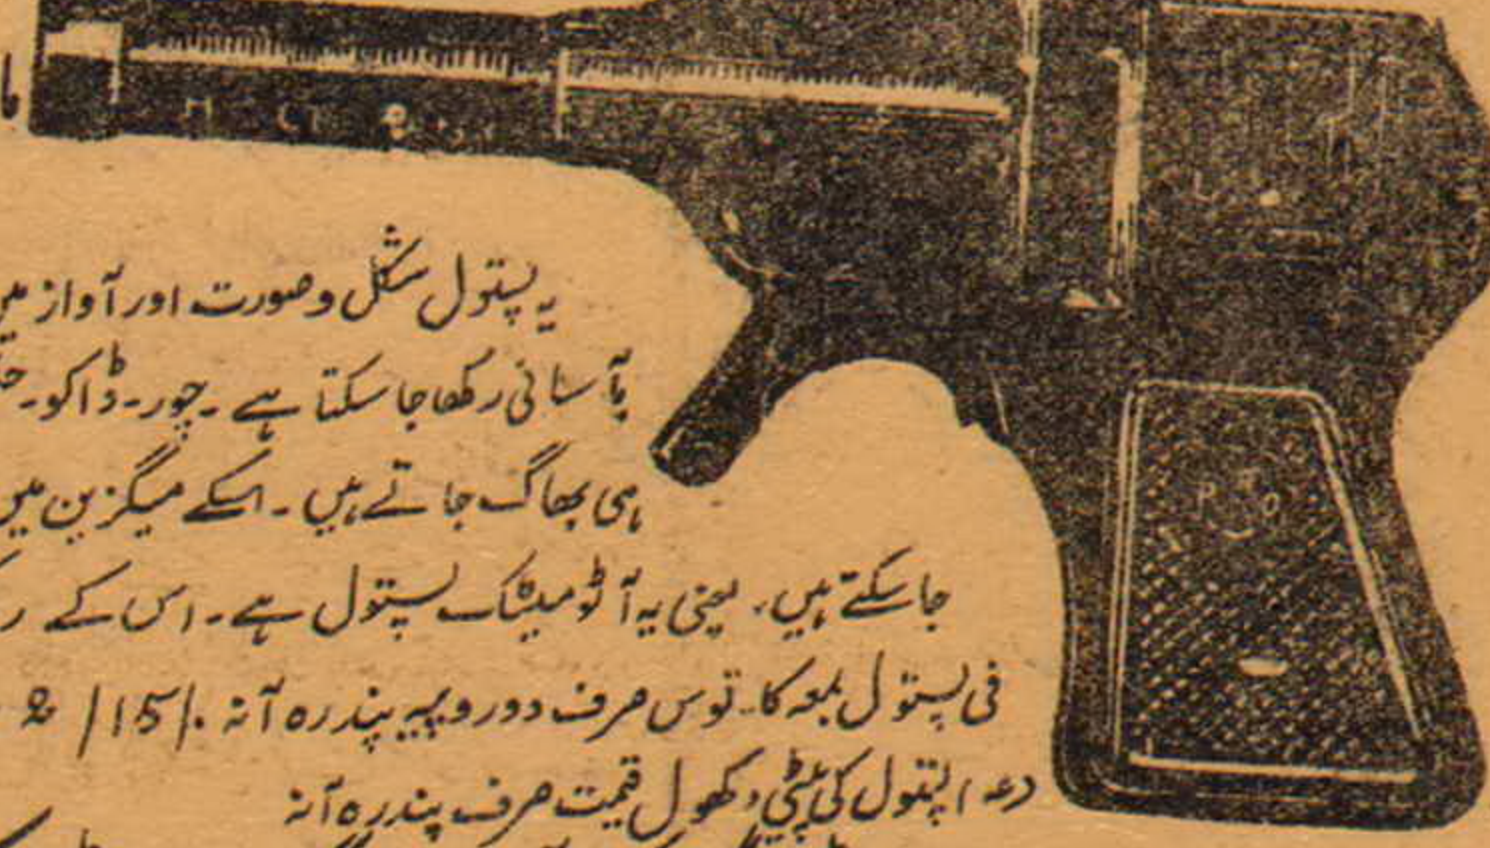 یہ پستول شکل و صورت اور آواز میں
بآسانی رکھا جا سکتا ہے ۔ چور ۔ ڈاکو ۔
ہی بھاگ جاتے ہیں ۔ اسکے میگزین میں
جا سکتے ہیں ۔ یعنی یہ آٹومیٹک پستول ہے ۔ اس کے
فی پستول بمعہ کارتوس صرف دو روپیہ پندرہ آنہ
پستول کی پیٹی و کھول قیمت صرف پندرہ آنہ